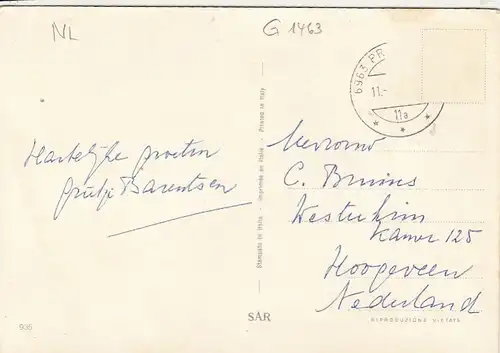 NL
G 1463
6963 PR
11.-
11a
Hartelijke groeten
Grietje Barentsen
Mevrouw
C. Bruins
Westerheim
Kamer 125
Hoogeveen
Nederland
Stampato in Italia - Imprimée en Italie - Printed in Italy
936
SAR
RIPRODUZIONE VIETATA